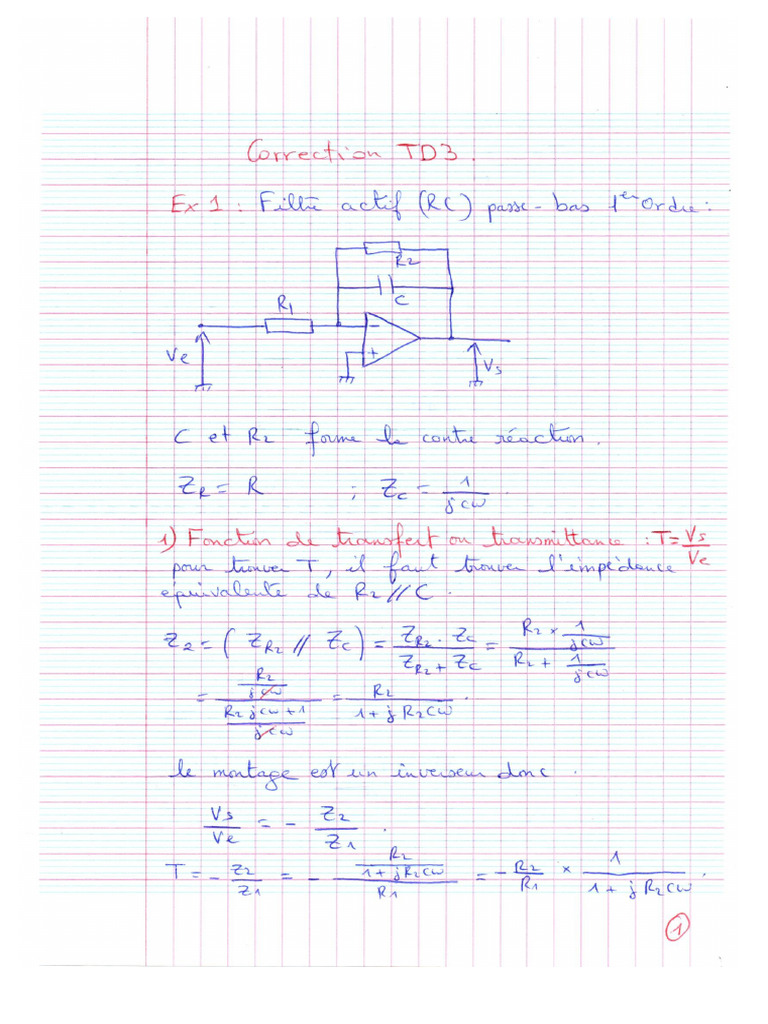 Correction TD3.
Ex 1 : Filtre actif (RC) passe-bas 1er Ordre :
R2
C
R1
-
+
Ve
Vs
C et R2 forme la contre réaction.
ZR = R ; Zc = 1/jcω
1) Fonction de transfert ou transmittance : T = Vs/Ve
pour trouver T, il faut trouver l'impédance
équivalente de R2 // C.
Z2 = ( ZR2 // Zc ) = (ZR2 . Zc)/(ZR2 + Zc) = (R2 × 1/jcω)/(R2 + 1/jcω)
= (R2/jcω)/((R2jcω + 1)/jcω) = R2/(1 + jR2cω) .
le montage est un inverseur donc .
Vs/Ve = - Z2/Z1 .
T = - Z2/Z1 = - (R2/(1 + jR2cω))/R1 = - R2/R1 × 1/(1 + jR2cω) .
1